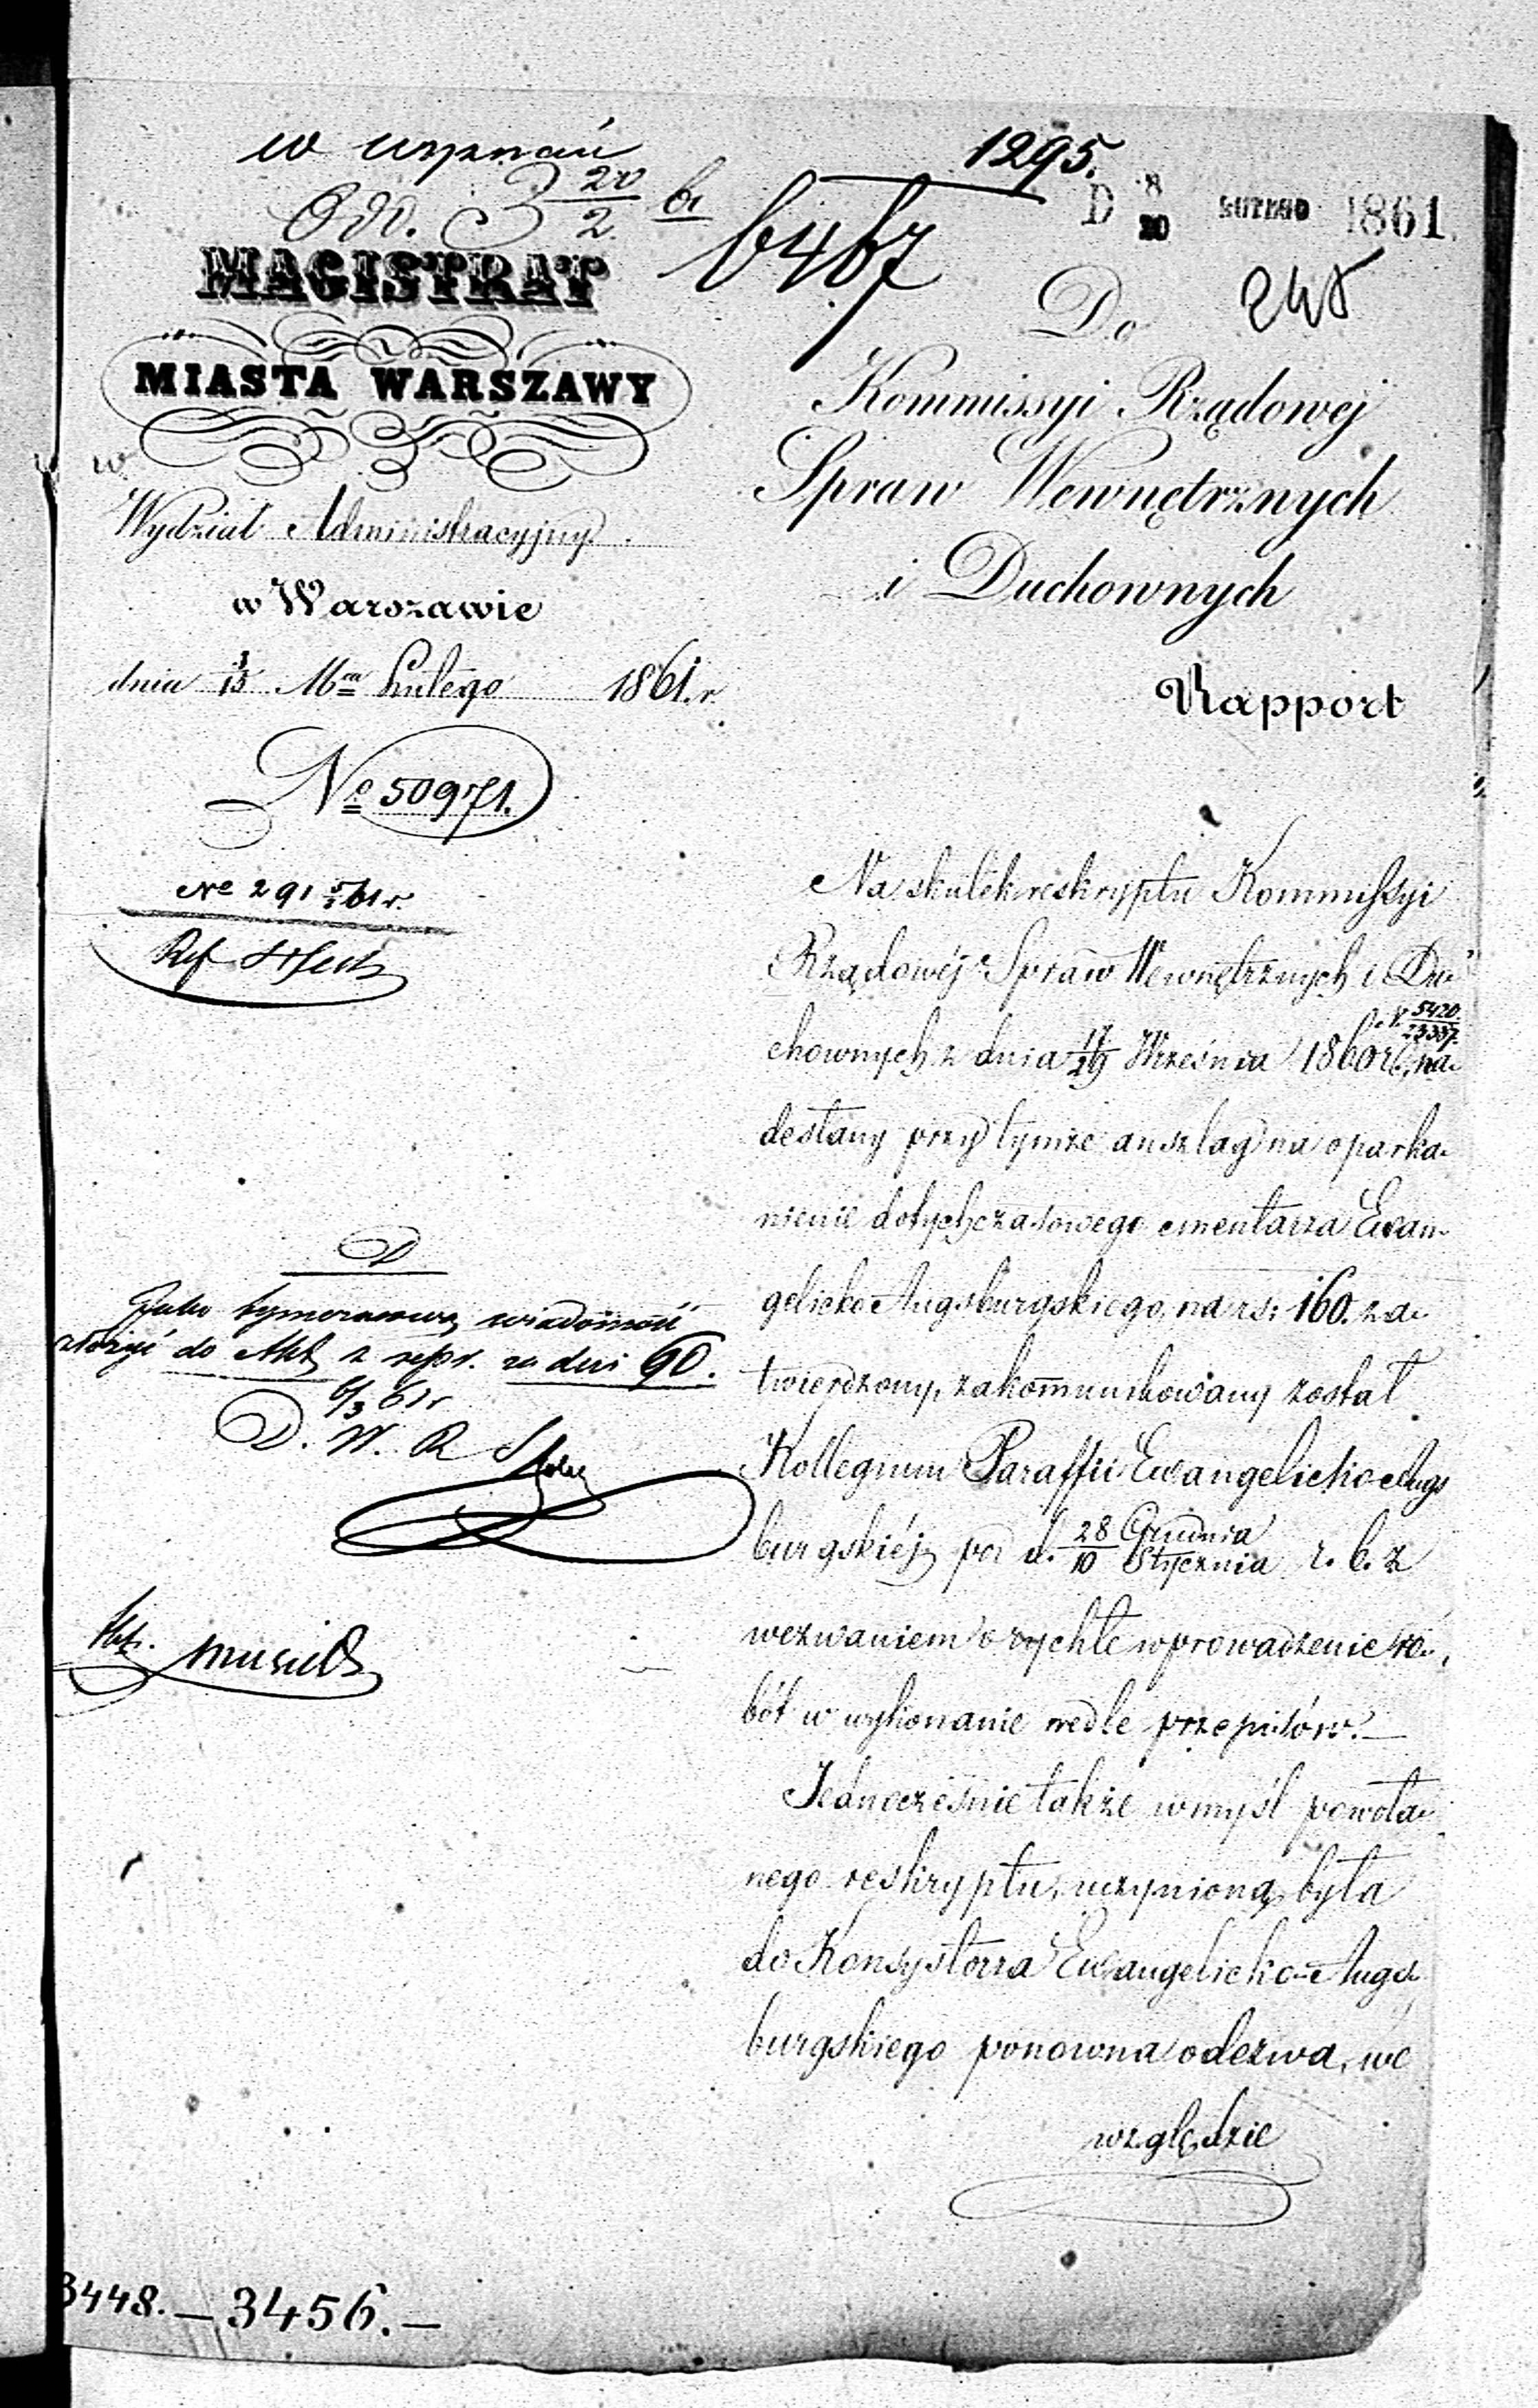 1295.
D 8/20 LUTEGO 1861.
20/2 61
6467
248
MAGISTRAT
MIASTA WARSZAWY
w
Wydział Administracyjny
w Warszawie
dnia 3/15 Mca Lutego 1861. r.
No 50971.
No 291 61 r.
Ref
Do
Kommissyi Rządowej
Spraw Wewnętrznych
i Duchownych
Rapport
Na skutek reskryptu Kommissyi
Rządowéj Spraw Wewnętrznych i Du-
5420/23357
chownych z dnia 17/29 Września 1860 r. na-
desłany przy tymże anszlag na oparka-
nienie dotychczasowego cmentarza Ewan-
gelicko Augsburgskiego, na rs: 160. za-
twierdzony, zakommunikowany został
Kollegium Paraffii Ewangelicko Augs
burgskiéj pod d. 28 Grudnia/10 Stycznia r. b. z
wezwaniem o rychłe wprowadzenie ro-
bót w wykonanie wedle przepisów. —
Jednocześnie także w myśl powoła-
nego reskryptu, uczynioną była
do Konsystorza Ewangelicko-Augs-
burgskiego ponowna odezwa, we
względzie
D
Jako tymczasową wiadomość
złożyć do Akt z repr. za dni 90.
6/3 61 r
D. W. R
3448. — 3456. —